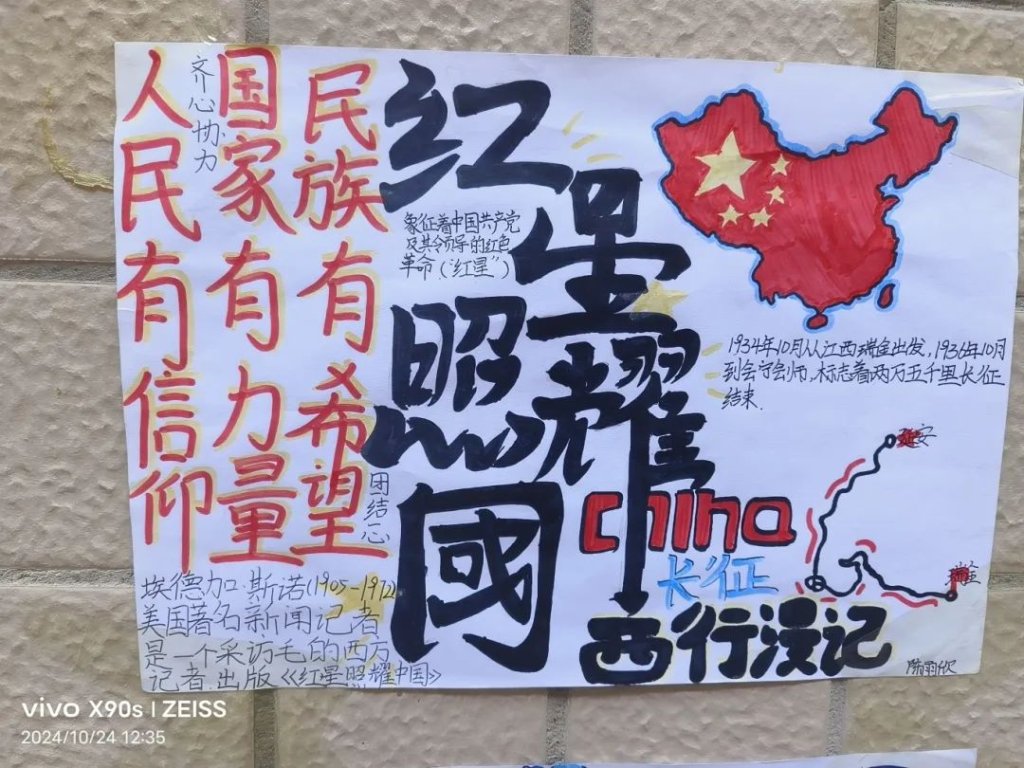 人民有信仰
齐心协力
国家有力量
民族有希望
团结心
红星
照耀
國
象征着中国共产党
及其领导的红色
革命（“红星”）
1934年10月从江西瑞金出发，1936年10月
到会宁会师，标志着两万五千里长征
结束.
延安
瑞金
China
长征
西行漫记
埃德加·斯诺(1905-1972)
美国著名新闻记者
是一个采访毛的西方
记者出版《红星照耀中国》
陈雨欣
vivo X90s | ZEISS
2024/10/24 12:35